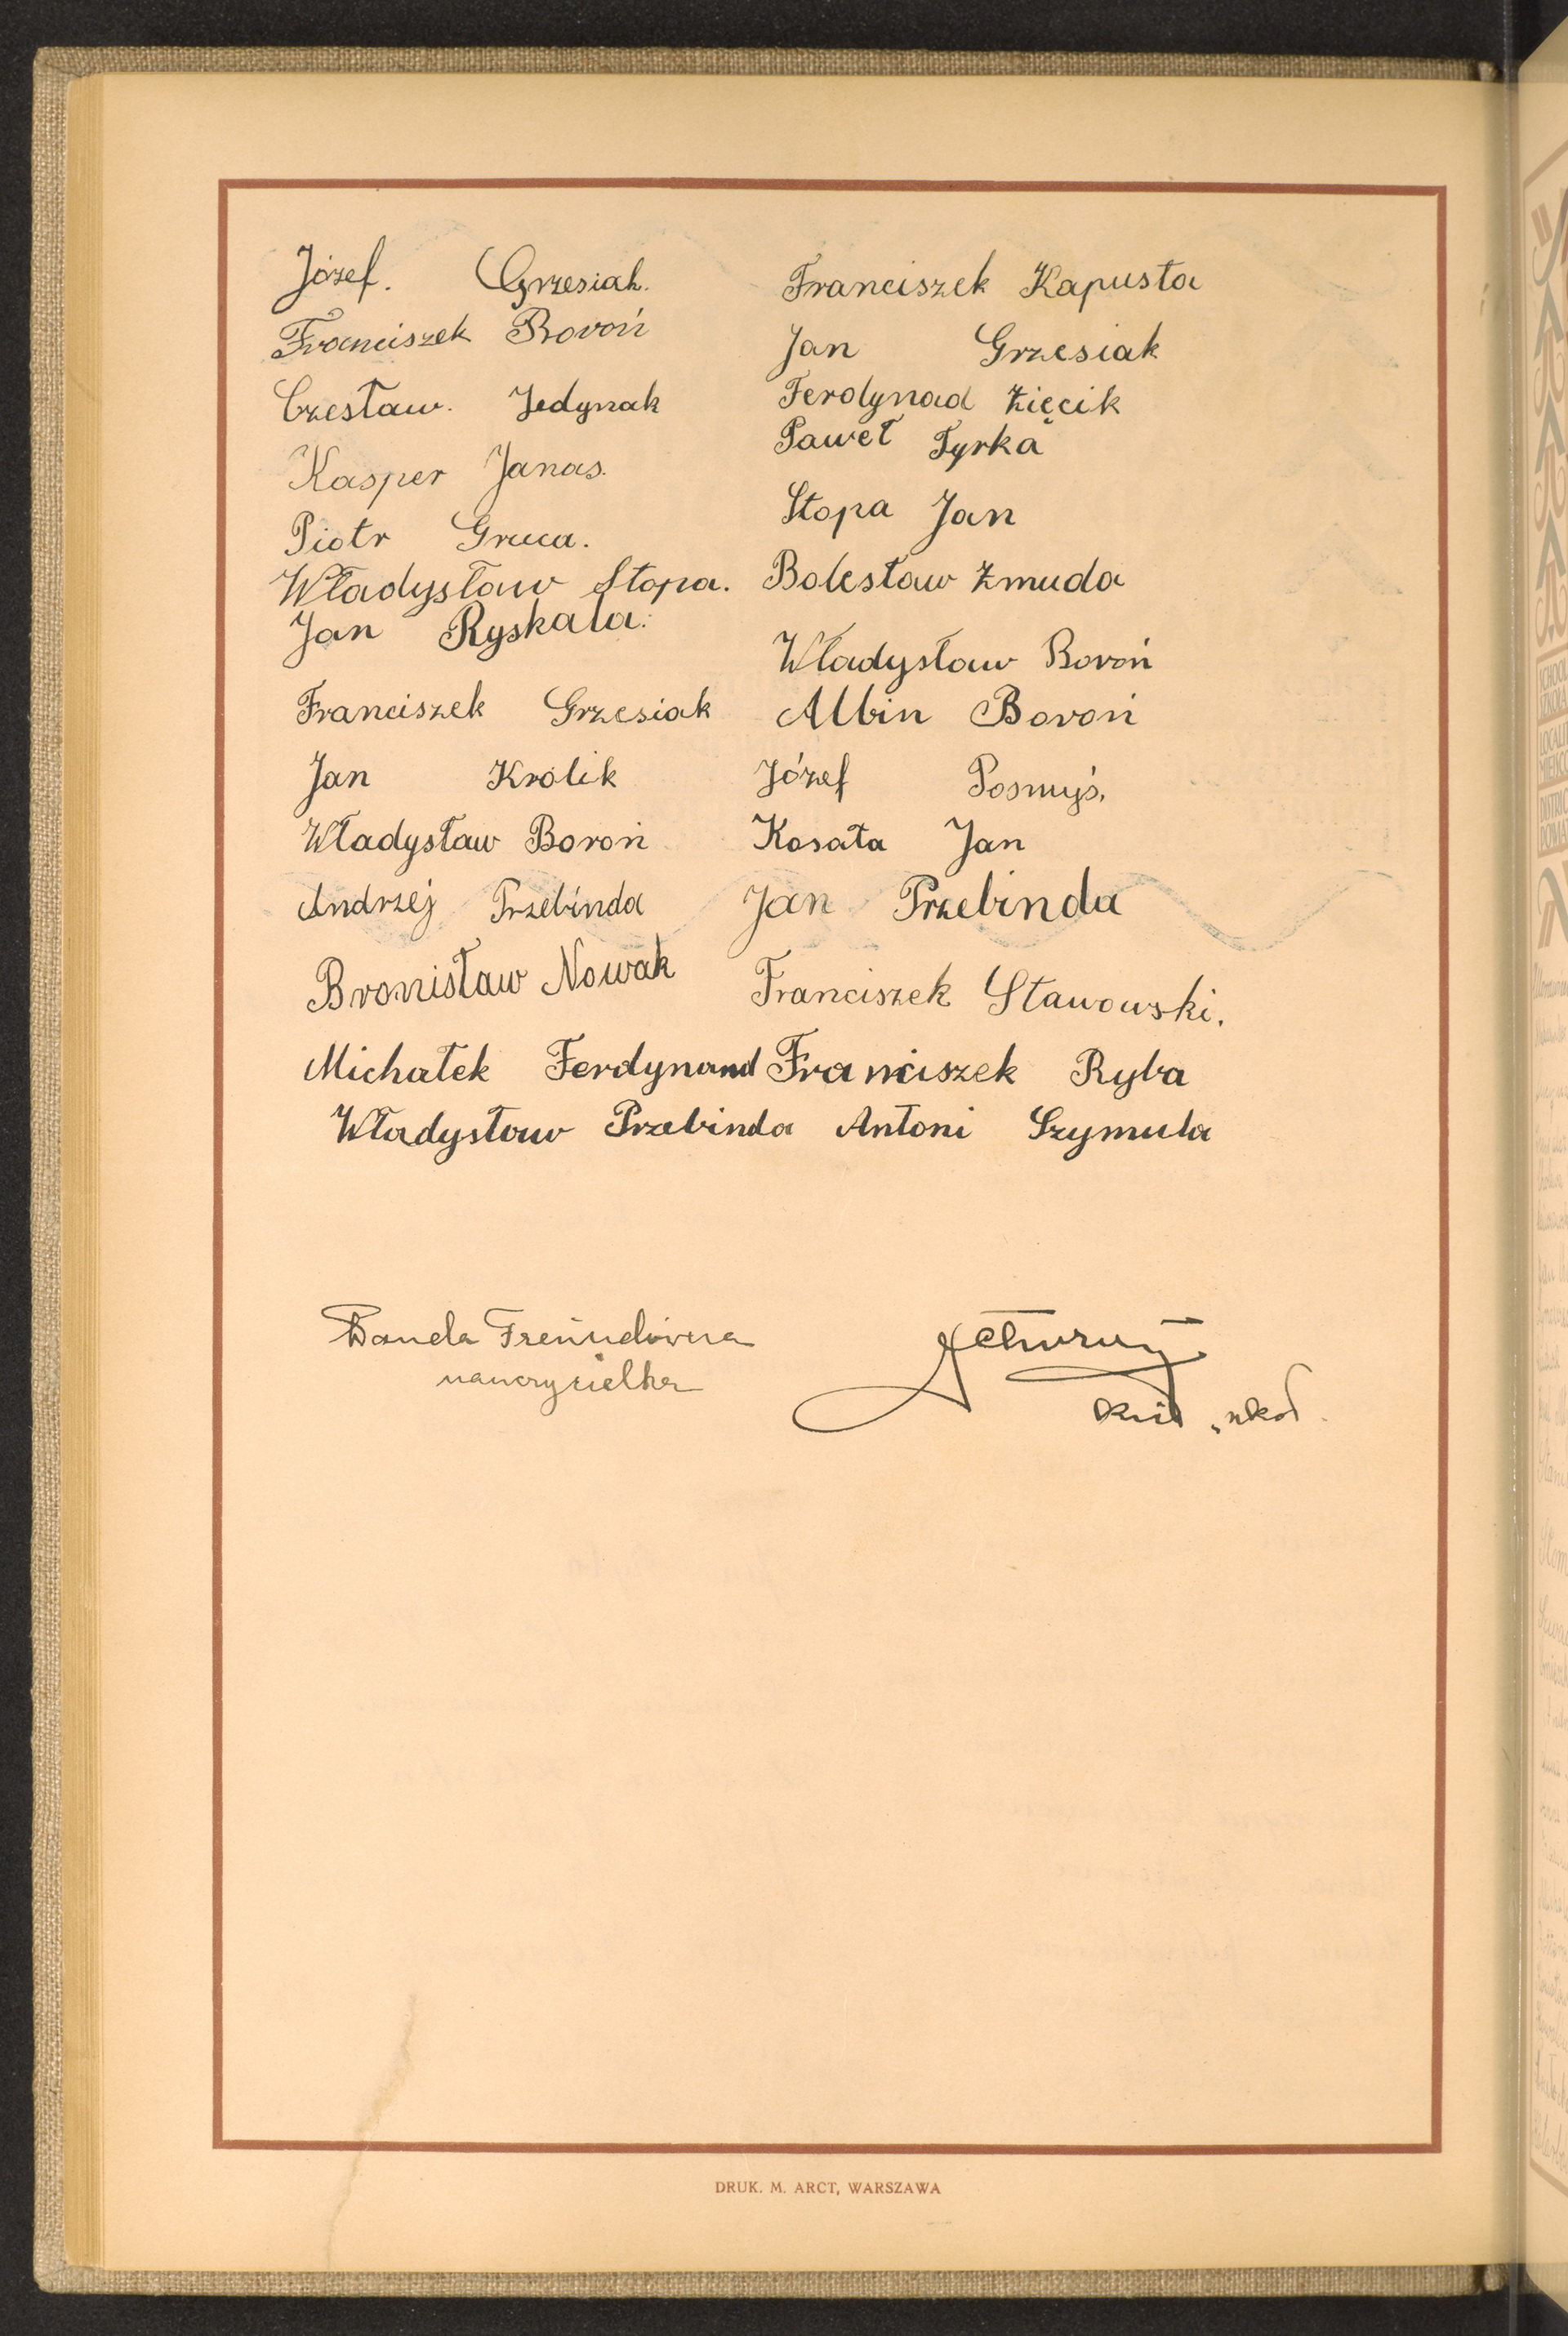 Józef. Grzesiak.
Franciszek Boroń
Czesław. Jedynak
Kasper Janas.
Piotr Gruca.
Władysław Stopa.
Jan Ryskala.
Franciszek Grzesiak
Jan Królik
Władysław Boroń
Andrzej Przebinda
Bronisław Nowak
Michałek Ferdynand
Władysław Przebinda
Franciszek Kapusta
Jan Grzesiak
Ferdynad Zięcik
Paweł Tyrka
Stopa Jan
Bolesław Żmuda
Władysław Boroń
Albin Boroń
Józef Posmyś,
Kosała Jan
Jan Przebinda
Franciszek Stawowski.
Franciszek Ryba
Antoni Szymula
Wanda
nauczycielka
DRUK. M. ARCT, WARSZAWA